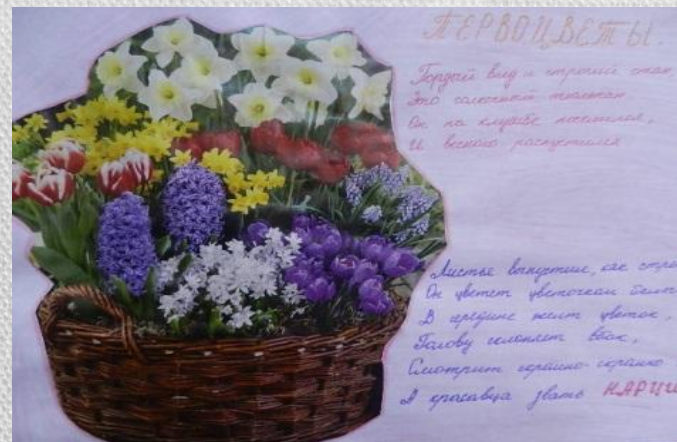 ПЕРВОЦВЕТЫ.
Гордый вид и строгий стан,
Это солнечный тюльпан
Он на клумбе поселился,
И весною распустился
Листья вытянутые, как стре
Он цветет цветочком бел
В середине желт цветок,
Голову склоняет вбок,
Смотрит скромно-скромно
А красавца звать НАРЦИ